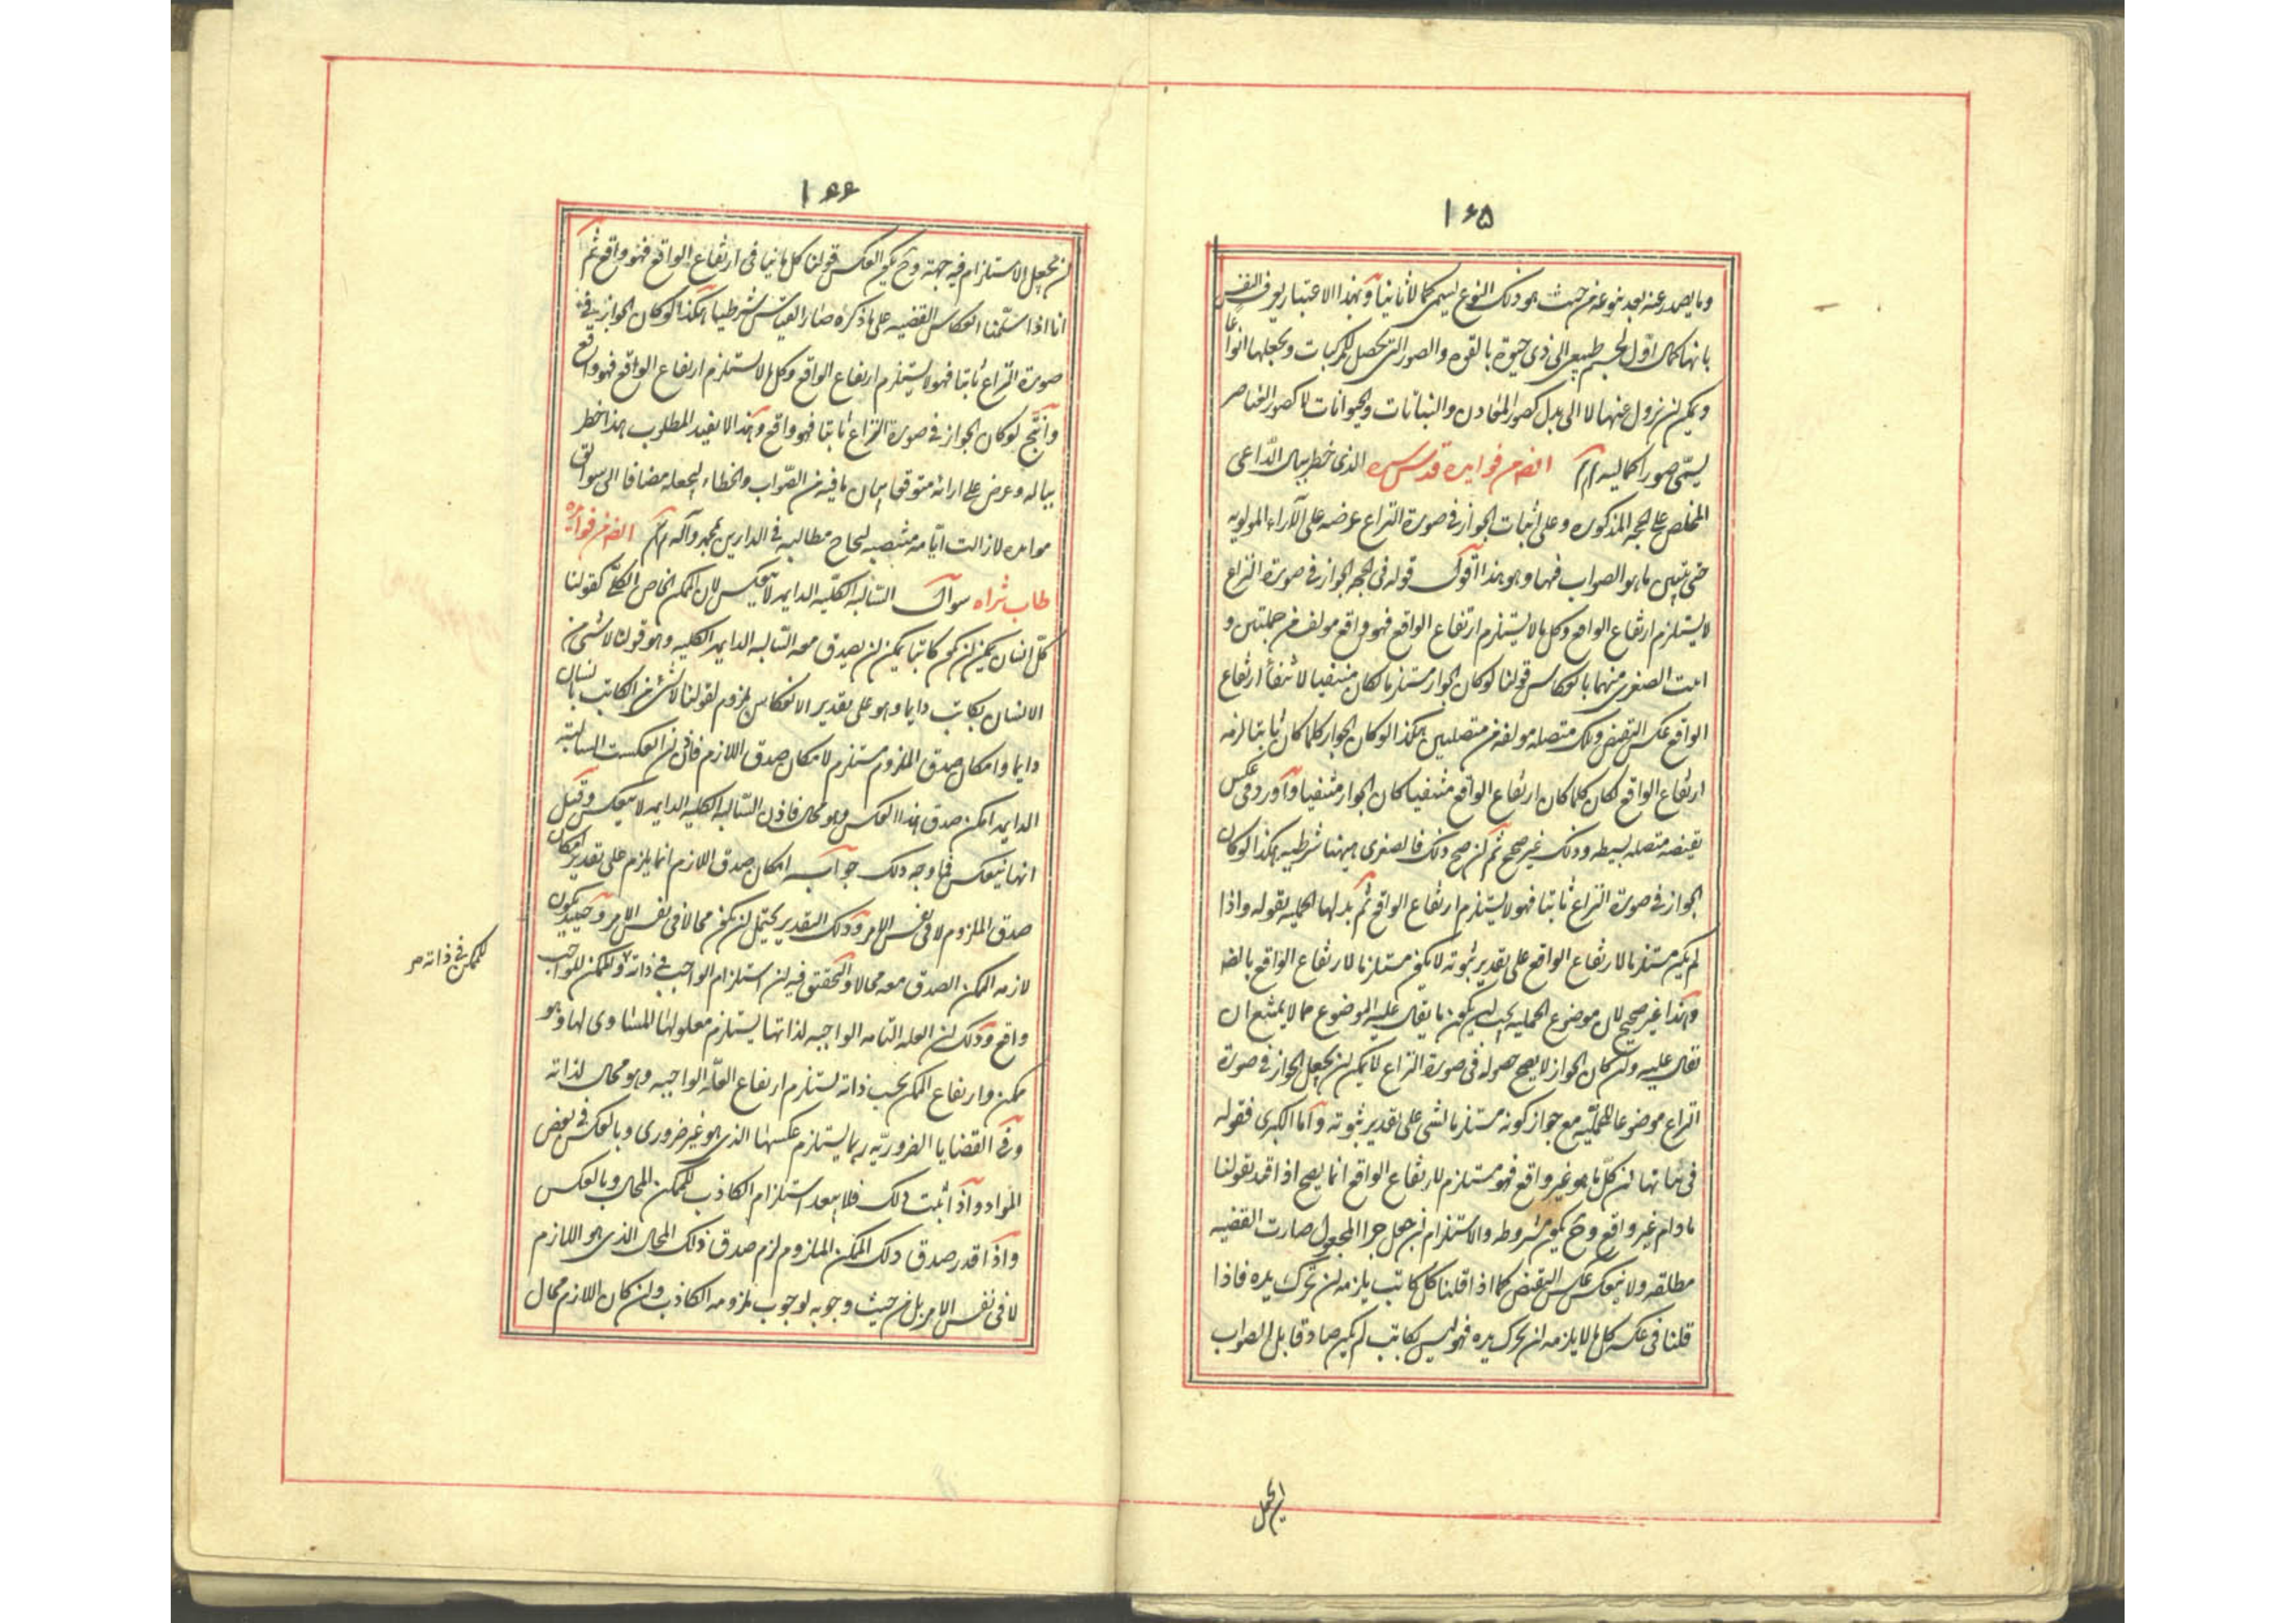 ١٦٥
وما يصدر عنه بعد تنوعه من حيث هو ذلك النوع يسمى كمالا ثانيا وبهذا الاعتبار يعرف النفس
بانها كمال اول لجسم طبيعى الى ذى حيوة بالقوه والصور التى تحصل للمركبات وتجعلها انواعا
ويمكن ان تزول عنها لا الى بدل كصور المعادن والنباتات والحيوانات لا كصور العناصر
يسمى صور الكماليه تم ايضا من فوايده قدس سره الذى خطر ببال الداعى
المخلص على الحجه المذكوره وعلى اثبات الجواز فى صورة النزاع عرضه على الآراء المولويه
حتى يتبين ما هو الصواب فيها وهو هذا اقول قوله فى الحجه الجواز فى صورة النزاع
لا يستلزم ارتفاع الواقع وكل ما لا يستلزم ارتفاع الواقع فهو واقع مولف من حمليتين و
اثبت الصغرى منهما بانعكاس قولنا لو كان الجواز مستلزما لكان منتفيا لانتفاء ارتفاع
الواقع عكس النقيض وتلك متصله مولفه من متصلتين هكذا لو كان الجواز كلما كان ثابتا لزمه
ارتفاع الواقع لكان كلما كان ارتفاع الواقع منتفيا كان الجواز منتفيا واورد فى عكس
نقيضه متصله بسيطه وذلك غير صحيح ثم ان صح ذلك فالصغرى ههنا شرطيه هكذا لو كان
الجواز فى صورة النزاع ثابتا فهو لا يستلزم ارتفاع الواقع ثم بدلها الحمليه بقوله واذا
لم يكن مستلزما لارتفاع الواقع على تقدير ثبوته لا يكون مستلزما لارتفاع الواقع بالضر
وهذا غير صحيح لان موضوع الحمليه يجب ان يكون ما يقال عليه الموضوع مما لا يمتنع ان
يقال عليه وان كان الجواز لا يصح حصوله فى صورة النزاع لا يمكن ان يجعل الجواز فى صورة
النزاع موضوعا للحمليه مع جواز كونه مستلزما لشى على تقدير ثبوته واما الكبرى فقوله
فى بيانها ان كل ما هو غير واقع فهو مستلزم لارتفاع الواقع انما يصح اذا قيد بقولنا
ما دام غير واقع وح يكون مشروطه والاستلزام ان جعل جزا المحمول صارت القضيه
مطلقه ولا ينعكس عكس النقيض كما اذا قلنا كل كاتب يلزمه ان تحرك يده فاذا
قلنا فى عكسه كل ما لا يلزمه ان تحرك يده فهو ليس بكاتب لم يكن صادقا بل الصواب
ان يجعل
١٦٦
ان يجعل الاستلزام فيه جهة وح يكون العكس قولنا كل ما ينافى ارتفاع الواقع فهو واقع ثم
انا اذا سلمنا انعكاس القضيه على ما ذكره صار القياس شرطيا هكذا لو كان الجواز فى
صورة النزاع ثابتا فهو لا يستلزم ارتفاع الواقع وكل ما لا يستلزم ارتفاع الواقع فهو واقع
وانتج لو كان الجواز فى صورة النزاع ثابتا فهو واقع وهذا لا يفيد المطلوب هذا خطر
بباله وعرض على ارائه متوقعا بيان ما فيه من الصواب والخطاء ليجعله مضافا الى سوالف
موايده لا زالت ايامه منتصبه لنجاح مطالبه فى الدارين بمحمد وآله تم ايضا من فوايده
طاب ثراه سوال السالبه الكليه الدايمه لا ينعكس لان الممكن الخاص الكلى كقولنا
كل انسان يمكن ان يكون كاتبا يمكن ان يصدق معه السالبه الدايمه الكليه وهو قولنا لا شى من
الانسان بكاتب دايما وهو على تقدير الانعكاس ملزوم لقولنا لا شى من الكاتب بانسان
دايما وامكان صدق الملزوم مستلزم لامكان صدق اللازم فاذن ان انعكست السالبه
الدايمه امكن صدق هذا العكس وهو محال فاذن السالبه الكليه الدايمه لا ينعكس وقيل
انها ينعكس فما وجه ذلك جوابه امكان صدق اللازم انما يلزم على تقدير امكان
صدق الملزوم لا فى نفس الامر وذلك التقدير يحتمل ان يكون محالا فى نفس الامر وحينئذ يكون
لازمه الممكن الصدق معه محالا والتحقيق فيه ان استلزام الواجب فى ذاته وللممكن للواجب
للممكن فى ذاته صر
واقع وذلك ان العله التامه الواجبه لذاتها يستلزم معلولها المساوى لها وهو
ممكن وارتفاع الممكن بحسب ذاته يستلزم ارتفاع العله الواجبه وهو محال لذاته
وفى القضايا الضروريه ربما يستلزم عكسها الذى هو غير ضرورى وبالعكس فى بعض
المواد واذا ثبت ذلك فلا يبعد استلزام الكاذب للممكن المحال وبالعكس
واذا قدر صدق ذلك الممكن الملزوم لزم صدق ذلك المحال الذى هو اللازم
لا فى نفس الامر بل من حيث وجوبه لوجوب ملزومه الكاذب وان كان اللازم محال